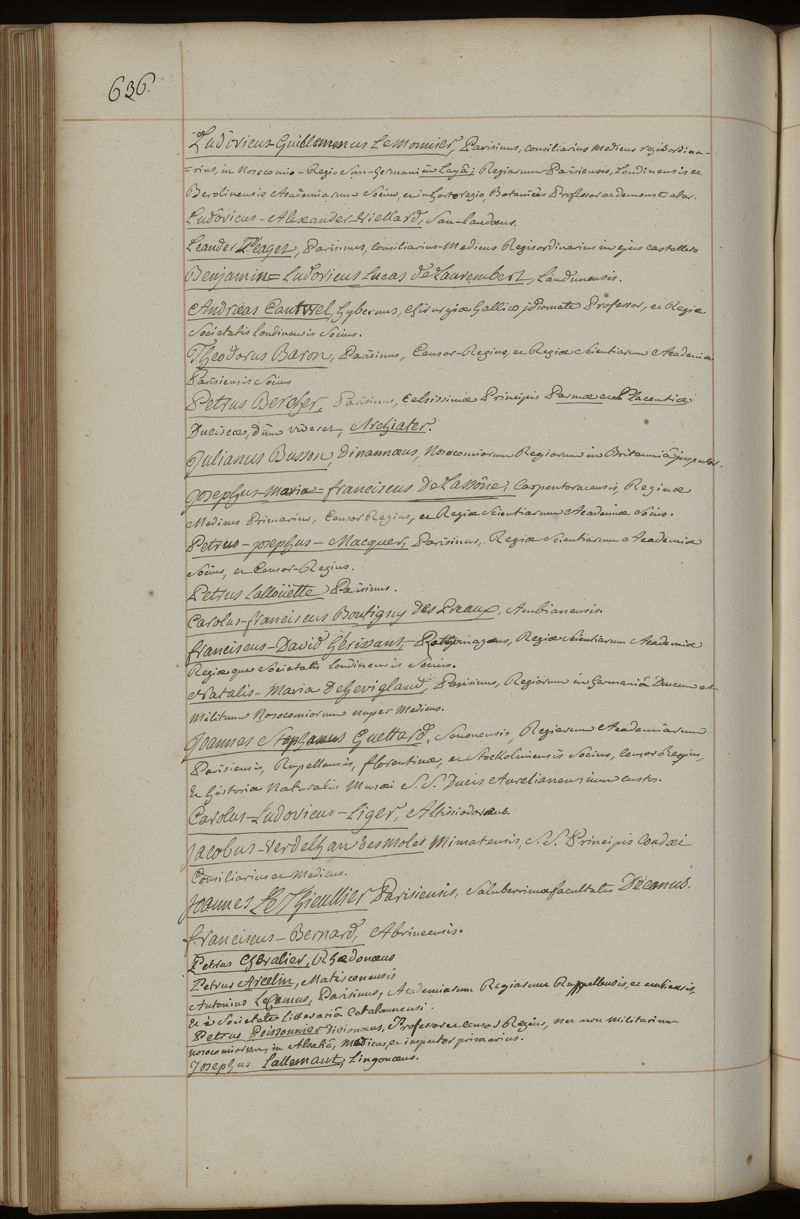 636.
Ludovicus-Guillemmus Lemonnier, Parisinus, consiliarius medicus regis ordina-
=rius, in Nosocomio-Regio San-Germani in Layâ; Regiarum Parisiensis, Londinensis et
Berolinensis Academiarum Socius, et in horto regio, Botanices Professor ac demonstrator.
Ludovicus-Alexander-Viellard, San-laudœus.
Leander Peaget, Parisinus, Consiliarius-Medicus Regis ordinarius in ejus castelleto
Benjamin=Ludovicus Lucas de Laurembert, Laudunensis.
Andræas Cantwel, Hybernus, Chirurgiæ Gallico jdiomate Professor, et Regiæ
Societatis londinensis Socius.
Theodorus Baron, Parisinus, Censor-Regius, et Regiæ Scientiarum Academiæ
Parisiensis Socius
Petrus Bercher, Parisinus, Celsissimæ Principis Parmæ et Placentiæ
Ducissæ, dùm viveret, Archiater.
Julianus Busson, Dinannæus, Nosocomiorum Regiorum in Britanniâ jnspector.
Josephus-Maria=franciscus de Lassône, Carpentoracensis, Reginæ
Medicus Primarius, Censor Regius, et Regiæ Scientiarum Academiæ Socius.
Petrus-josephus-Macquer, Parisinus, Regiæ Scientiarum Academiæ
Socius, et Censor-Regius.
Petrus Lalloüette Parisinus.
Carolus-franciscus Boutigny des Preaux, Ambianensis.
franciscus-David hérissant, Rothomagæus, Regiæ Scientiarum Academiæ
Regiæque Societatis londinensis Socius.
Natalis-Maria de Gevigland, Parisinus, Regiorum in Germaniâ Ducum et
Militum Nosocomiorum nuper Medicus.
Joannes Stephanus Guettard, Senonensis, Regiarum Academiarum
Parisiensis, Rupellensis, florentinæ, et Stockolmiensis Socius, Censor Regius,
Et historiæ Naturalis Musæi S.S. Ducis Aurelianensium custos.
Carolus-Ludovicus-Liger, Altissiodoræus.
Jacobus-Verdelhan des moles Mimatensis, S.S. Principis Condæi
Consiliarius et Medicus.
Joannes Le Thieullier Parisiensis, Saluberrimæ facultatis Decanus.
franciscus-Bernard, Abrincensis.
Petrus Chevalier, Rhedonæus
Petrus Arcelin, Matisconensis
Antonius Le Camus, Parisinus, Academiarum Regiarum Ruppellensis, et ambiensis,
Et è Societate litterariâ Catalaunensi.
Petrus Poissonnier divionæus, Professor et censor Regius, nec non militarium
nosocomiorum, in Alsatiâ, Medicus, et inspector primarius.
Josephus Lallemant, Lingonæus.